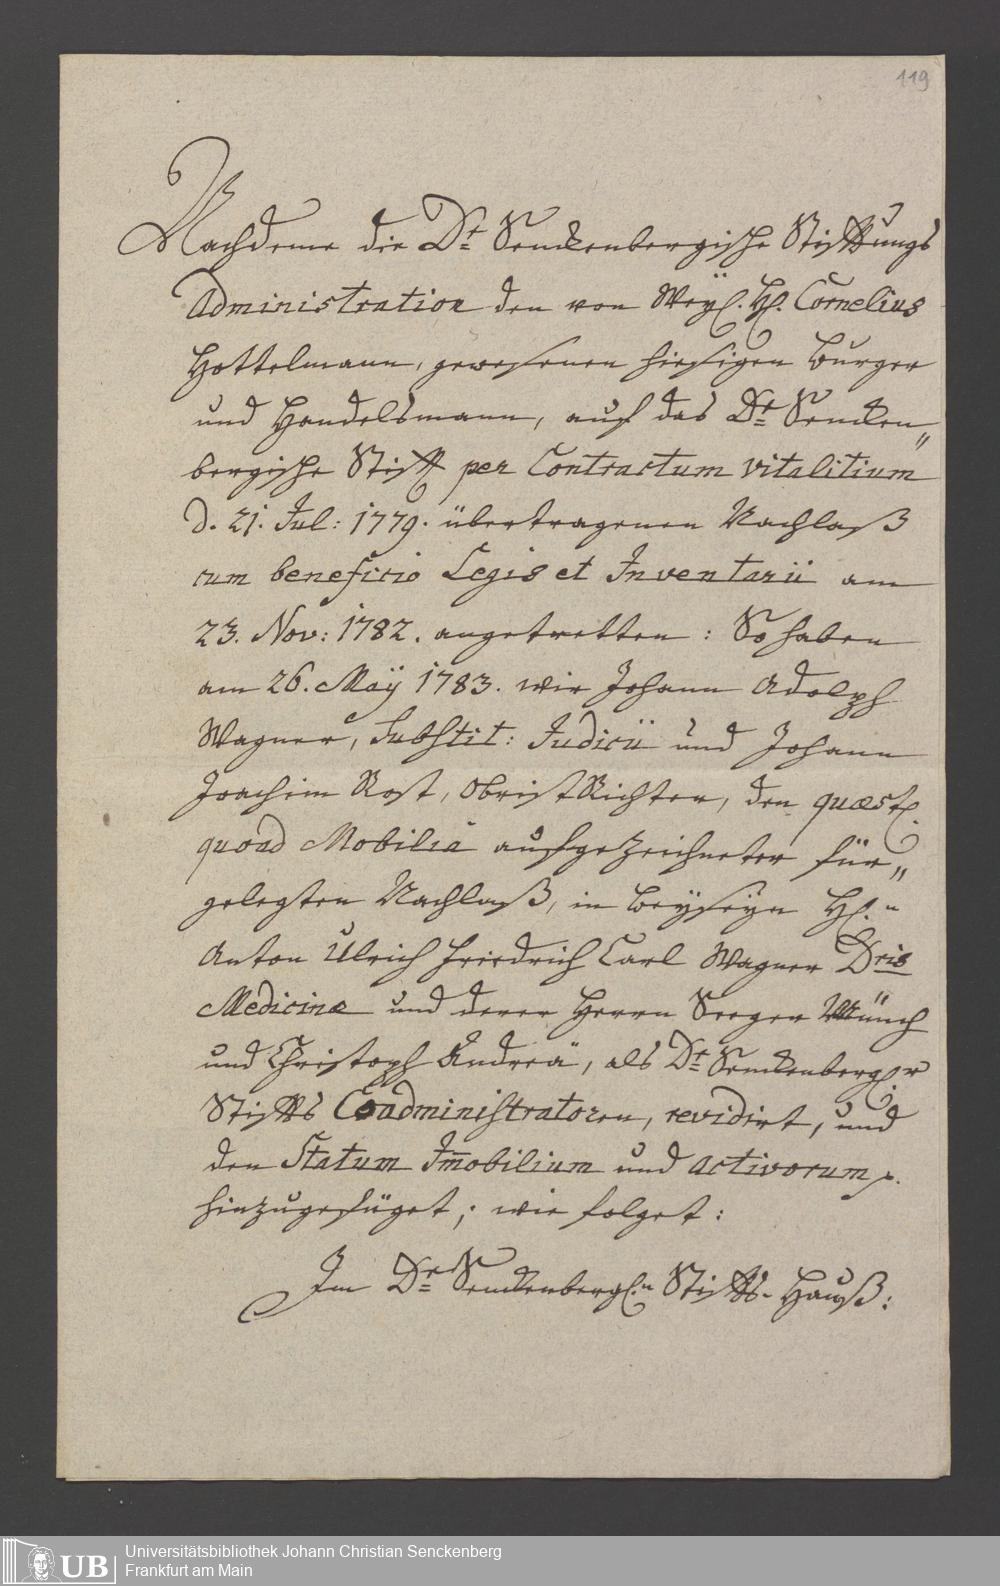 119
Nachdeme die Dr. Senckenbergische Stifftungs
Administration den von Weyl. H. Cornelius
Hottelmann, gewesenen hiesigen Burger
und Handelsmann, auf das Dr. Sencken„
bergische Stifft per Contractum vitalitium
d. 21. Jul: 1779. übertragenen Nachlaß
cum beneficio Legis et Inventarii am
23. Nov: 1782. angetretten: So haben
am 26. Maÿ 1783. wir Johann Adolph
Wagner, Substit: Judicii und Johann
Joachim Rost, ObristRichter, den quæst.
quoad Mobilia aufgezeichneter für„
gelegten Nachlaß, in Beyseyn H.n
Anton Ulrich Friedrich Carl Wagner Dris
Medicinæ und derer Herrn Seeger Münch
und Christoph Andreä, als Dr. Senckenberg.r
Stiffts Coadministratoren, revidirt, und
den Statum Im̄obilium und activorum p.
hinzugefüget; wie folget:
Im Dr. Senckenbergs.n Stiffts-Hauß:
UB
Universitätsbibliothek Johann Christian Senckenberg
Frankfurt am Main